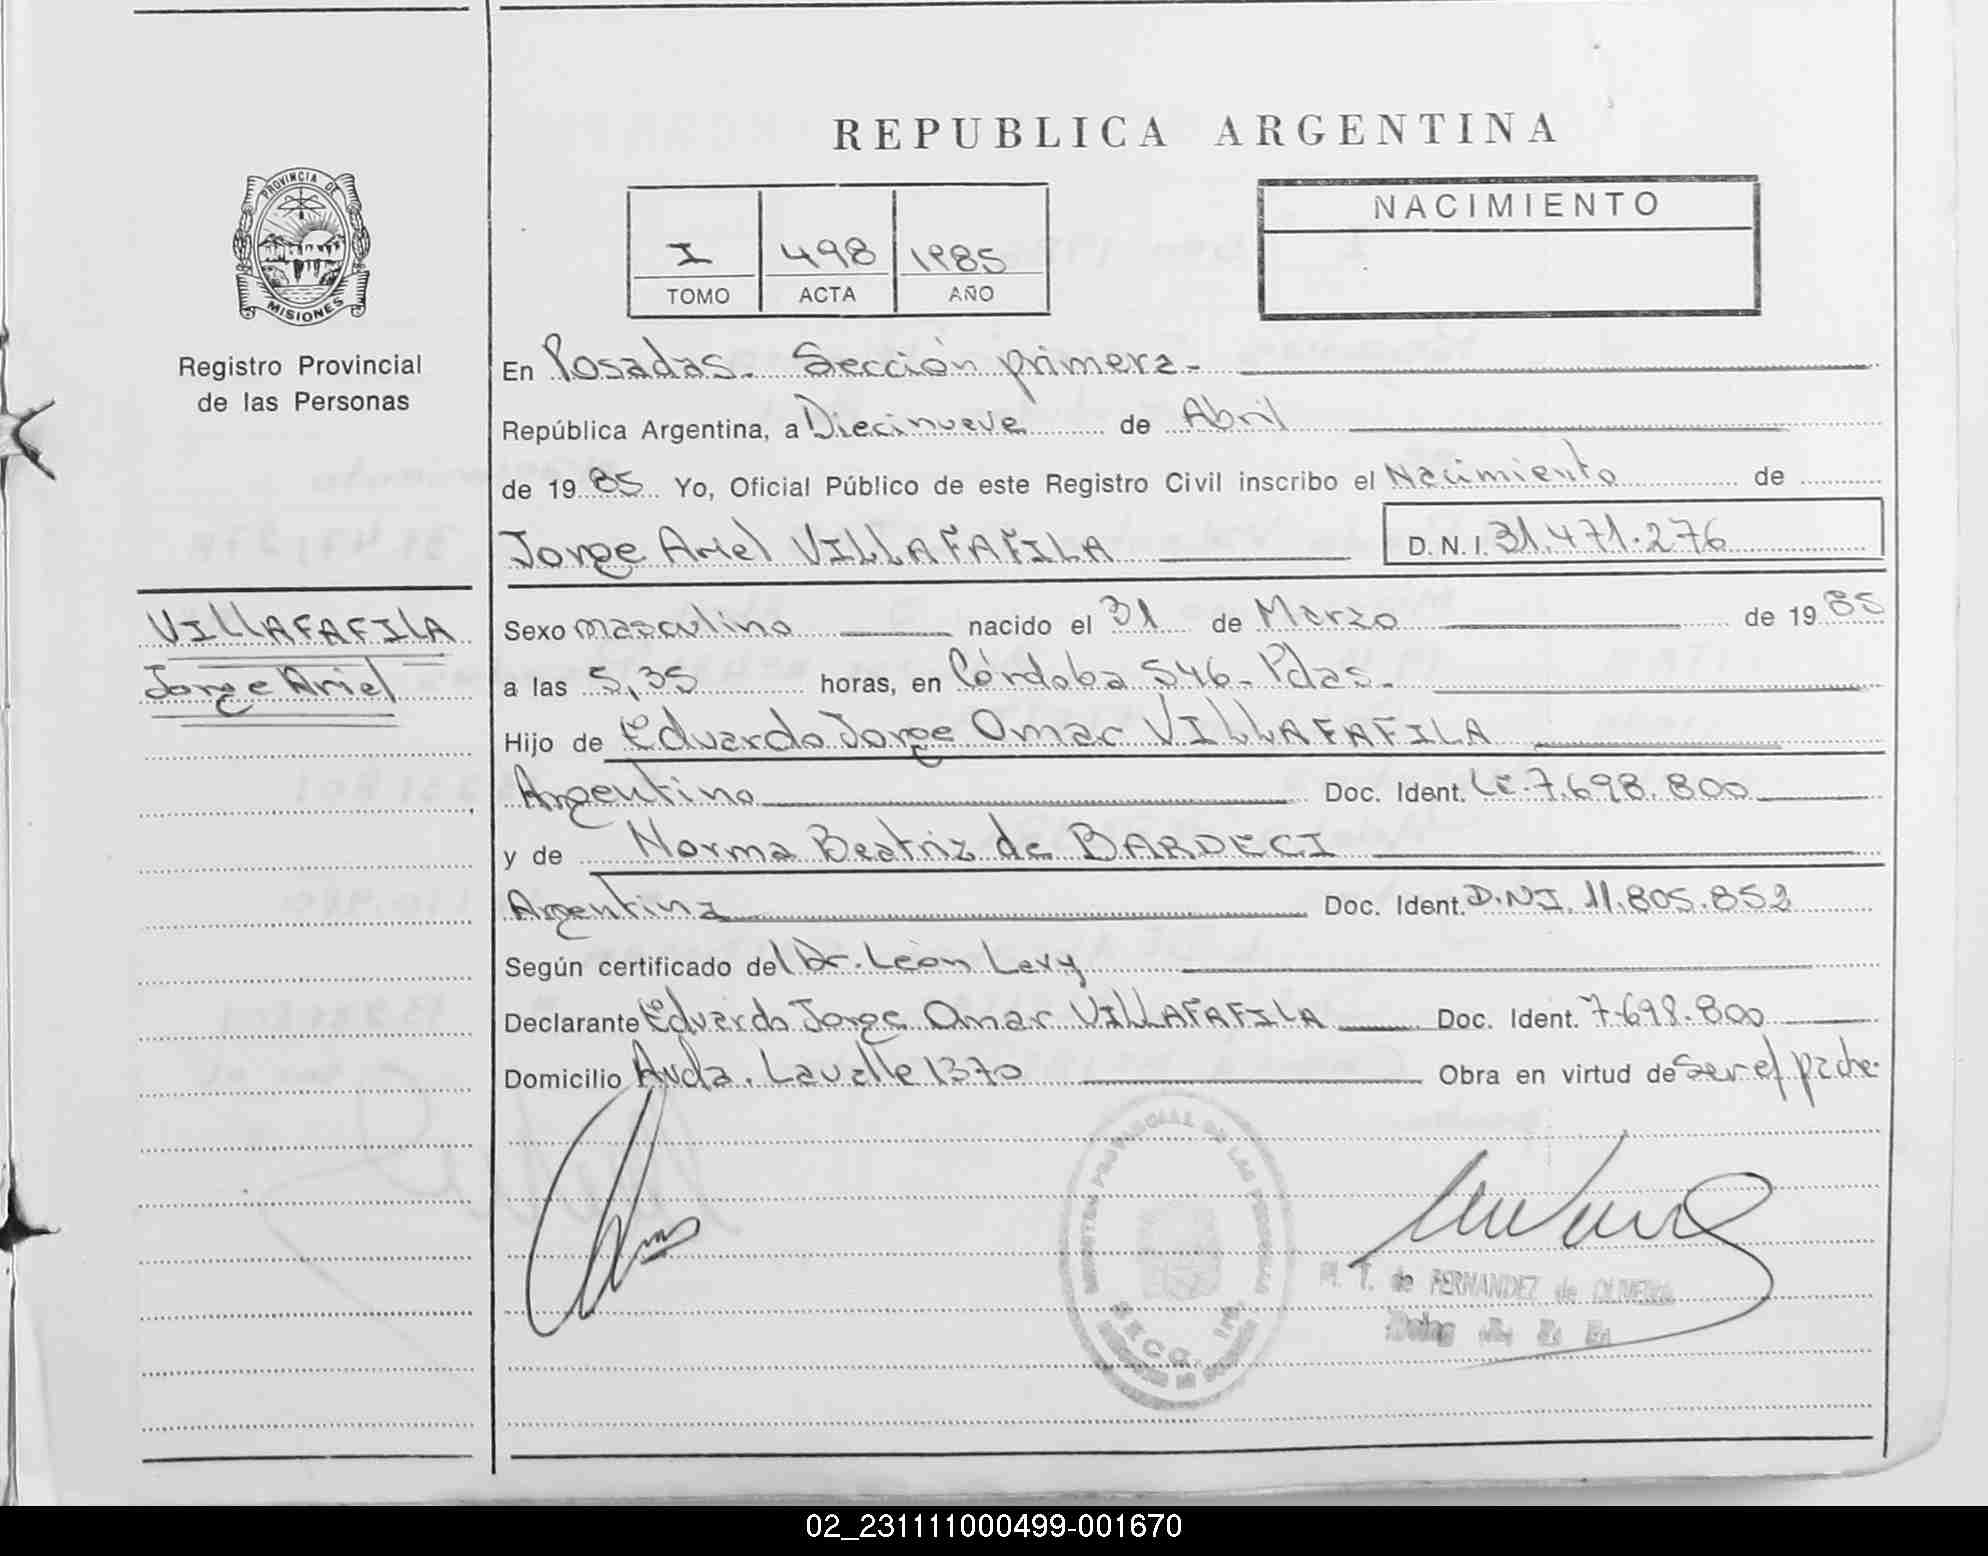 REPUBLICA ARGENTINA
PROVINCIA DE
MISIONES
Registro Provincial
de las Personas
I 498 1985
TOMO ACTA AÑO
NACIMIENTO
En Posadas. Sección primera-
República Argentina, a Diecinueve de Abril
de 1985 Yo, Oficial Público de este Registro Civil inscribo el Nacimiento de
Jorge Ariel VILLAFAFILA D.N.I. 31.471.276
VILLAFAFILA
Jorge Ariel
Sexo masculino nacido el 31 de Marzo de 1985
a las 5,35 horas, en Córdoba 546- Pdas.
Hijo de Eduardo Jorge Omar VILLAFAFILA
Argentino Doc. Ident. LE. 7.698.800
y de Norma Beatriz de BARDECI
Argentina Doc. Ident. D.NI. 11.805.852
Según certificado del Dr. León Levy
Declarante Eduardo Jorge Omar VILLAFAFILA Doc. Ident. 7.698.800
Domicilio Avda. Lavalle 1370 Obra en virtud de ser el padre.
M. T. de FERNANDEZ de OLIVEIRA
02_231111000499-001670